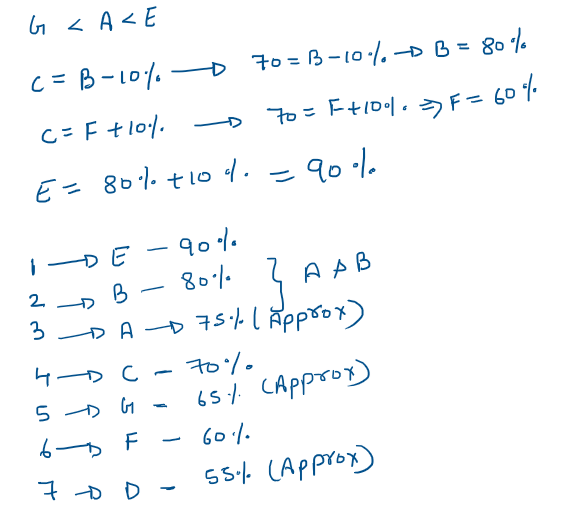 G < A < E
C = B - 10% → 70 = B - 10% → B = 80%
C = F + 10%. → 70 = F + 10%. ⇒ F = 60%.
E = 80% + 10%. = 90%.
1 → E - 90%.
2 → B - 80%. } A B
3 → A → 75% (Approx)
4 → C - 70%.
5 → G - 65%. (Approx)
6 → F - 60%.
7 → D - 55%. (Approx)